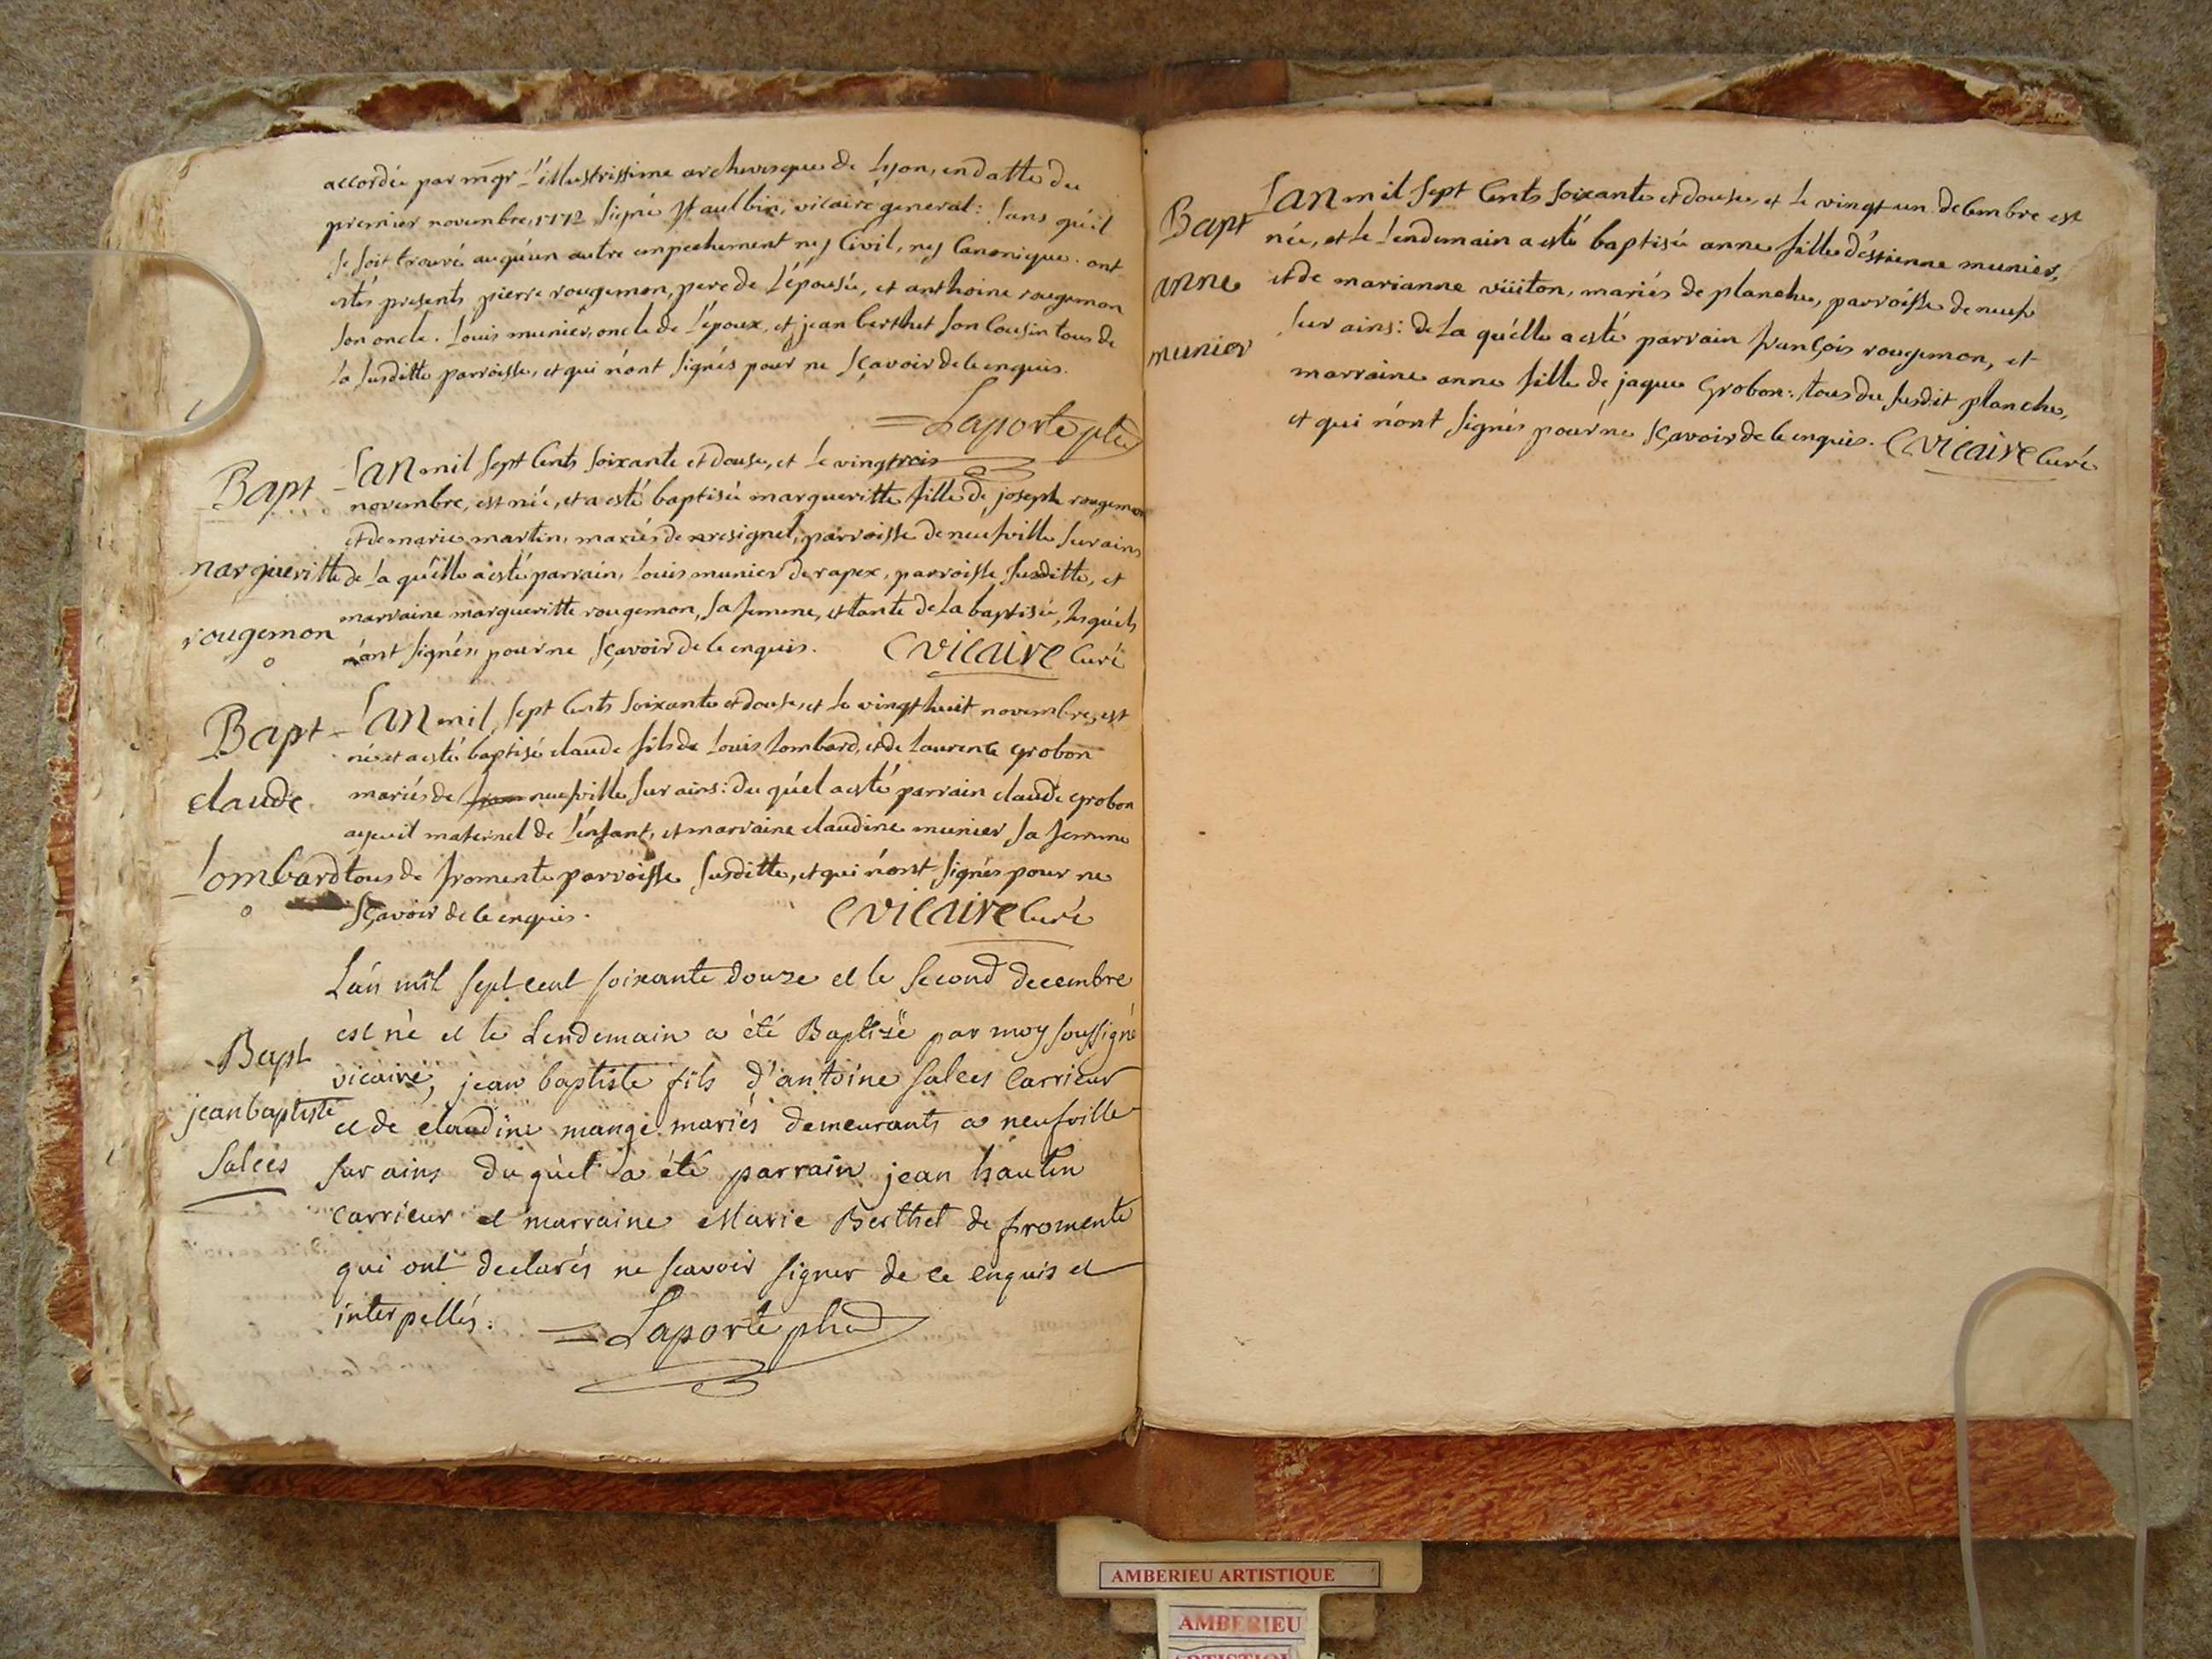 accordée par mgr L'illustrissime archevesque de Lyon, en datte du
premier novembre, 1772 signé vicaire general: sans qu'il
se soit trouvé auqu'un autre empechement ny Civil, ny Canonique. ont
estés presents pierre rougemon, pere de L'épousée, et anthoine rougemon
son oncle. Louis munier, oncle de L'époux, et jean berthet son Cousin tous de
La susditte parroisse, et qui n'ont signés pour ne sçavoir de ce enquis.
Laporte
Bapt
margueritte
rougemon
L'AN mil sept Cents soixante et douse, et Le vingtrois
novembre, est née, et a esté baptisée margueritte fille de joseph rougemon
et de marie martin, mariés de resignel, parroisse de neufville sur ains
de La qu'elle a esté parrain, Louis munier de rapex, parroisse susditte, et
marraine margueritte rougemon, sa femme, et tante de La baptisée, Lesquels
n'ont signés pour ne sçavoir de ce enquis. C vicaire Curé
Bapt
claude
Lombard
L'AN mil sept Cents soixante et douse, et Le vingt huit novembre, est
né et a esté baptisé claude fils de Louis Lombard, et de Laurence grobon
mariés de neufville sur ains: du qu'el a esté parrain claude grobon
ayeuil maternel de L'enfant, et marraine claudine munier sa femme
tous de fromente parroisse susditte, et qui n'ont signés pour ne
sçavoir de ce enquis. C vicaire Curé
Bapt
jean baptiste
Salces
L'an mil sept cent soixante douze et le second decembre
est né et le Lendemain a été Baptizé par moy soussigné
vicaire, jean baptiste fils d'antoine salces Carrieur
et de claudine mange mariés demeurants a neufville
sur ains du quel a été parrain jean hautin
Carrieur et marraine Marie Berthet de fromente
qui ont declarés ne scavoir signer de ce enquis et
interpellés. Laporte
Bapt
anne
munier
L'AN mil sept Cents soixante et douse, et Le vingt un decembre est
née, et Le Lendemain a esté baptisée anne fille d'estienne munier,
et de marianne vüiton, mariés de planche, parroisse de neuf
sur ains: de La qu'elle a esté parrain françois rougemon, et
marraine anne fille de jaque Grobon: tous du susdit planche,
et qui n'ont signés pour ne sçavoir de ce enquis. C vicaire Curé
AMBERIEU ARTISTIQUE
AMBERIEU
ARTISTIQUE